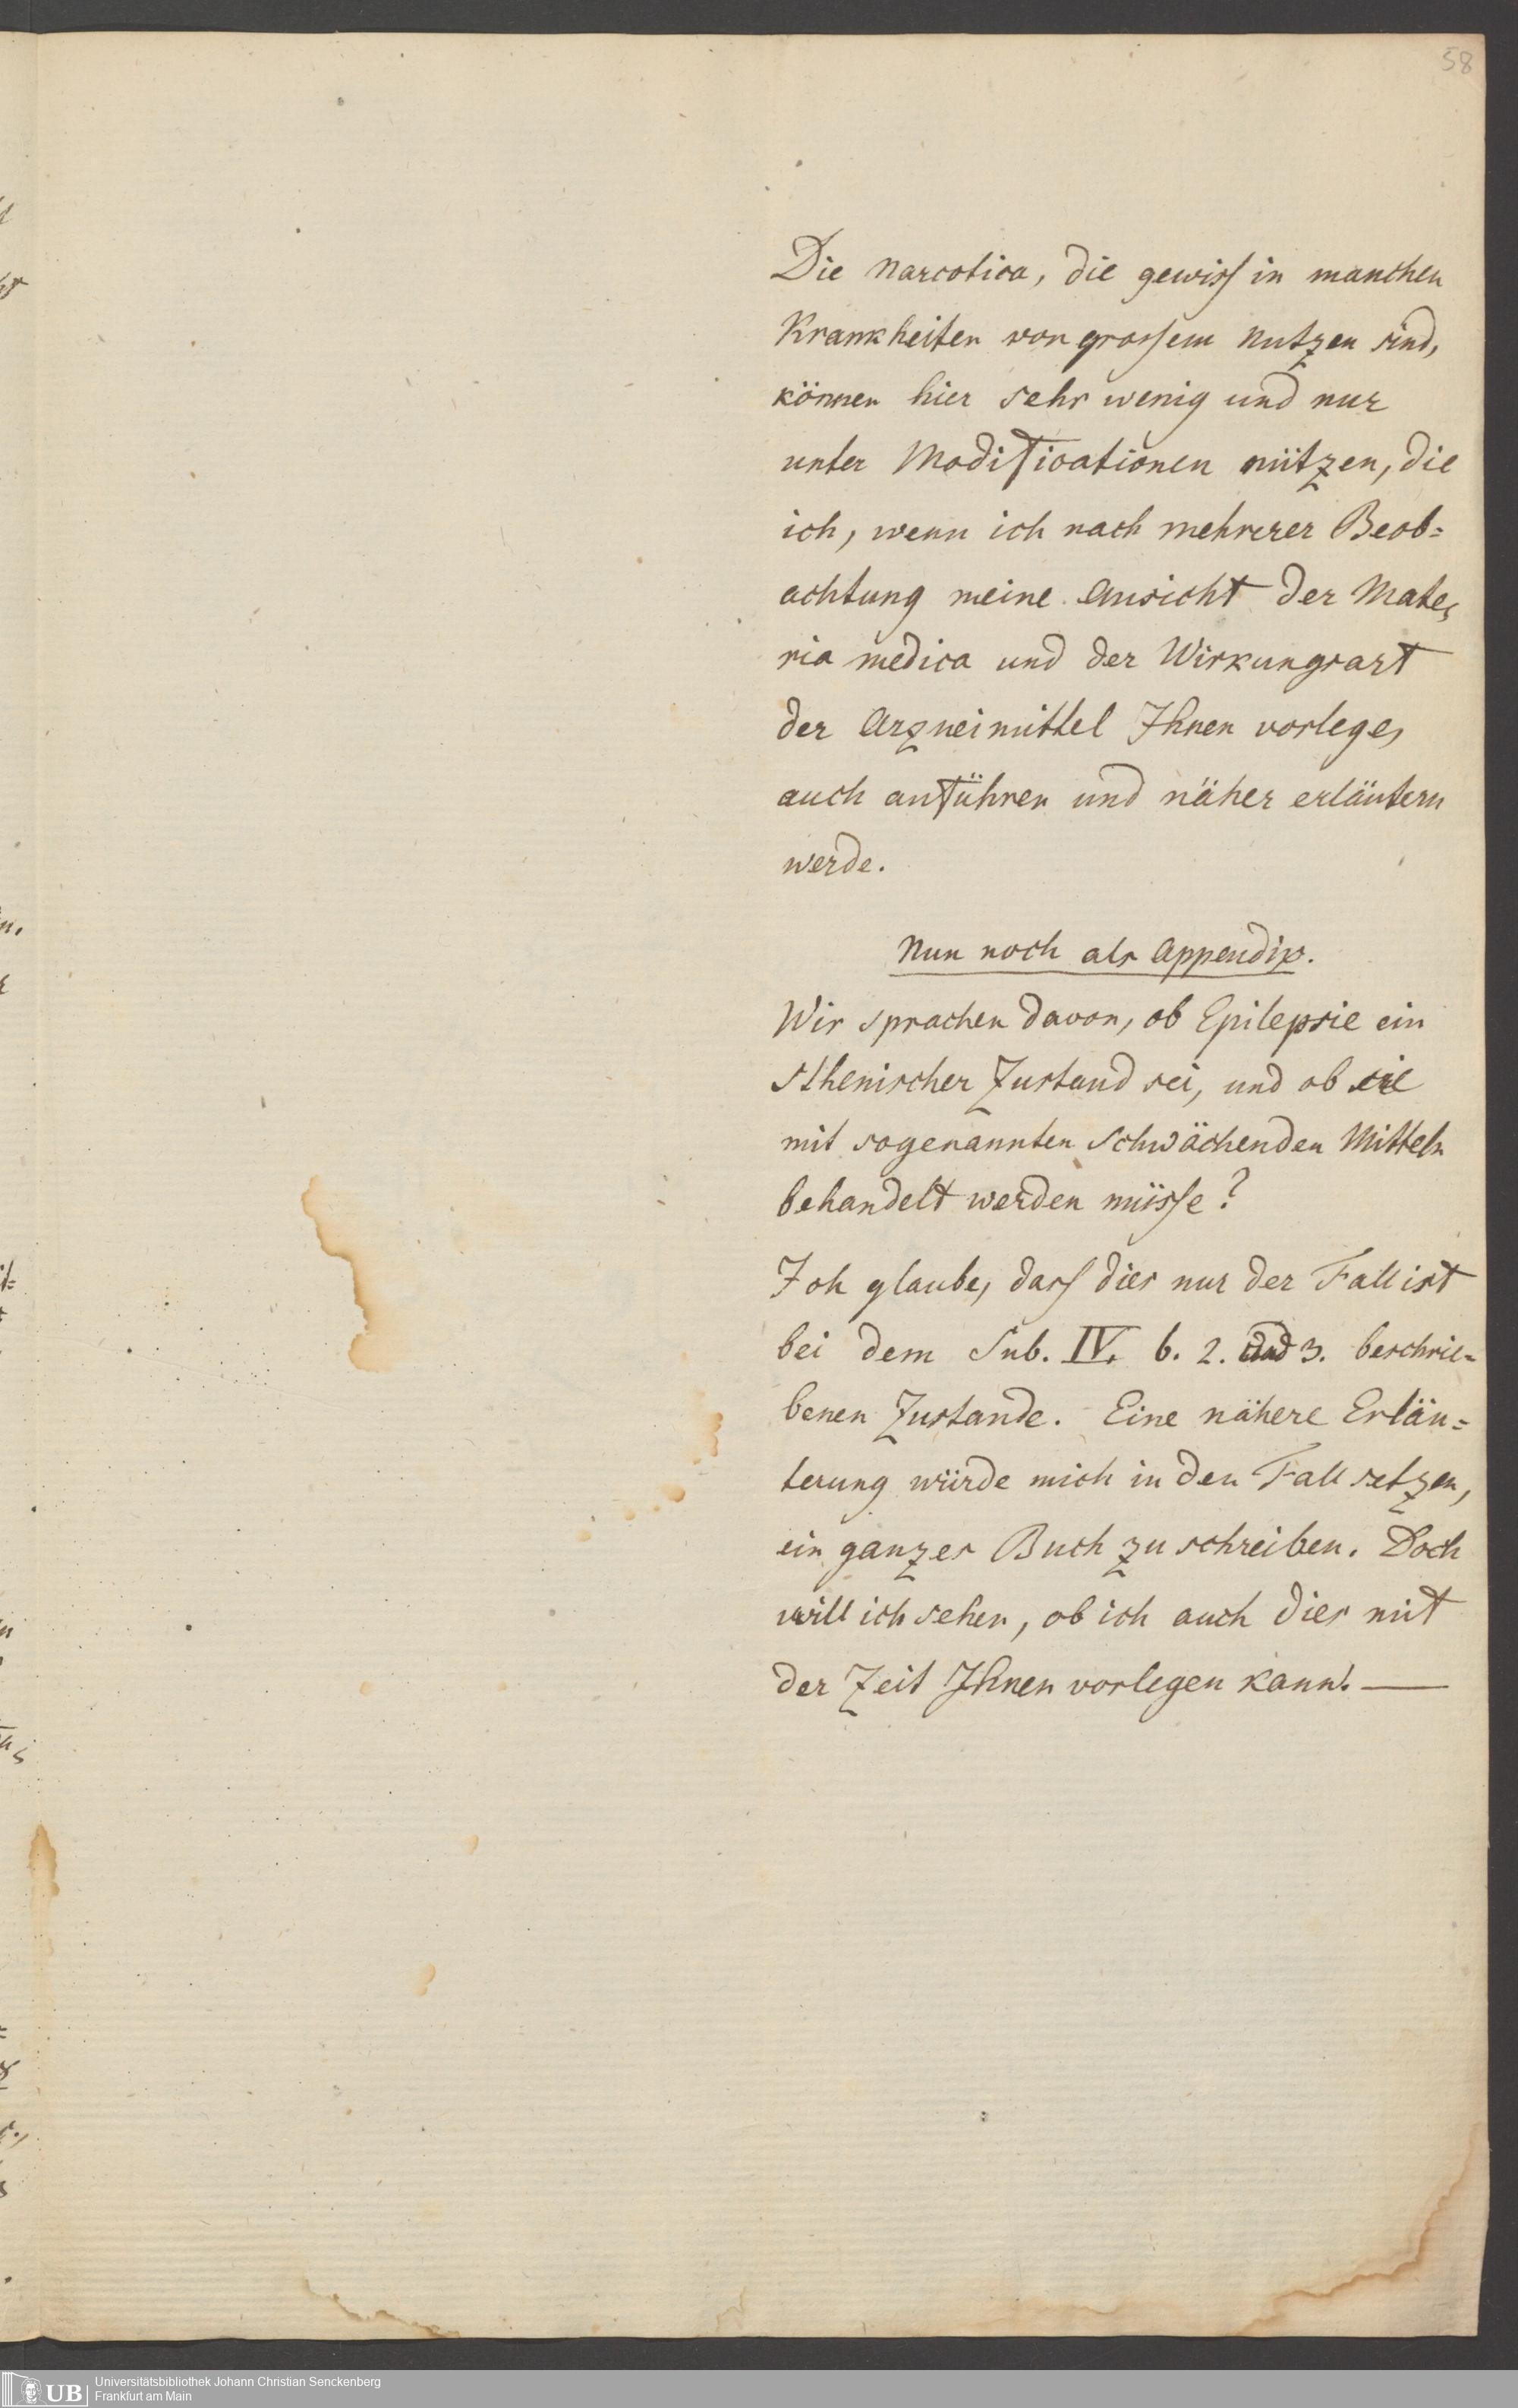 58
Die Narcotica, die gewiss in manchen
Krankheiten von grossem Nutzen sind,
können hier sehr wenig und nur
unter Modificationen nützen, die
ich, wenn ich nach mehrerer Beob=
achtung meine Ansicht der Mate,
ria medica und der Wirkungsart
der Arzneimittel Ihnen vorlege,
auch anführen und näher erläutern
werde.
Nun noch als Appendix.
Wir sprachen davon, ob Epilepsie ein
sthenischer Zustand sei, und ob sie
mit sogenannten schwächenden Mitteln
behandelt werden müsse?
Ich glaube, dass dies nur der Fall ist
bei dem Sub. IV. b. 2. und 3. beschrie=
benen Zustande. Eine nähere Erläu=
terung würde mich in den Fall setzen,
ein ganzes Buch zu schreiben. Doch
will ich sehen, ob ich auch dies mit
der Zeit Ihnen vorlegen kann. —
UB
Universitätsbibliothek Johann Christian Senckenberg
Frankfurt am Main